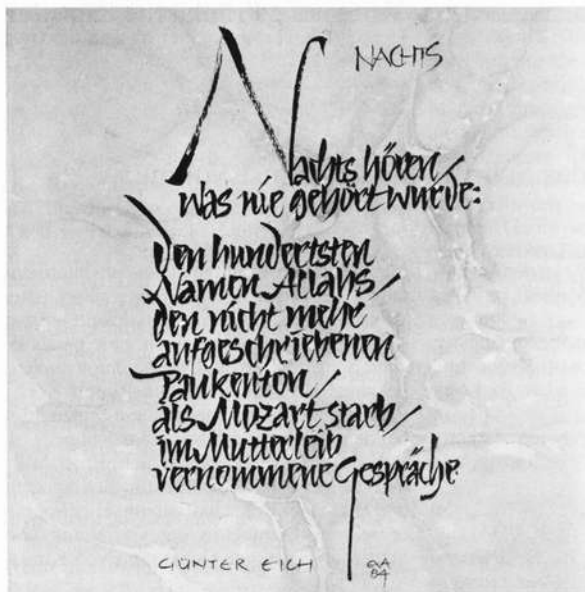 NACHTS
Nachts hören/
was nie gehört wurde:
Den hundertsten
Namen Allahs/
den nicht mehr
aufgeschriebenen
Paukenton/
als Mozart starb/
im Mutterleib
vernommene Gespräche
GÜNTER EICH
84